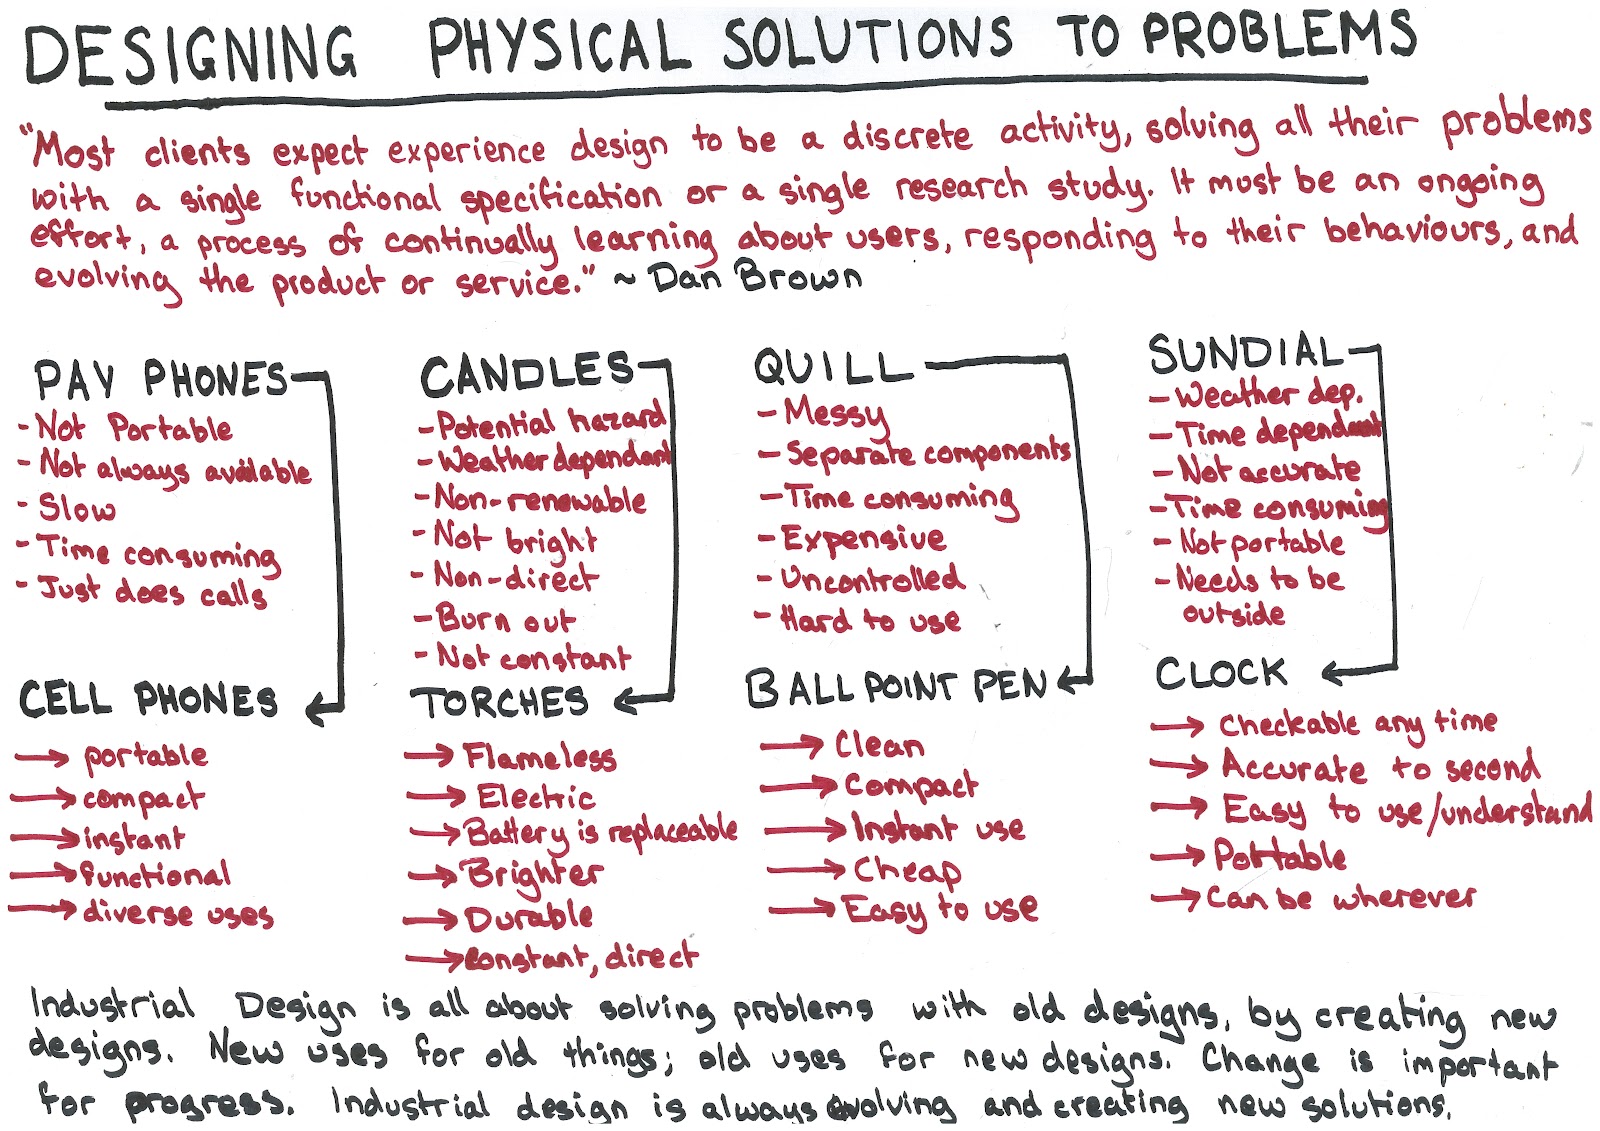 DESIGNING PHYSICAL SOLUTIONS TO PROBLEMS
"Most clients expect experience design to be a discrete activity, solving all their problems
with a single functional specification or a single research study. It must be an ongoing
effort, a process of continually learning about users, responding to their behaviours, and
evolving the product or service." ~ Dan Brown
PAY PHONES
- Not Portable
- Not always available
- Slow
- Time consuming
- Just does calls
CELL PHONES
→ portable
→ compact
→ instant
→ functional
→ diverse uses
CANDLES
- Potential hazard
- Weather dependant
- Non-renewable
- Not bright
- Non-direct
- Burn out
- Not constant
TORCHES
→ Flameless
→ Electric
→ Battery is replaceable
→ Brighter
→ Durable
→ constant, direct
QUILL
- Messy
- Separate components
- Time consuming
- Expensive
- Uncontrolled
- Hard to use
BALLPOINT PEN
→ Clean
→ Compact
→ Instant use
→ Cheap
→ Easy to use
SUNDIAL
- Weather dep.
- Time dependant
- Not accurate
- Time consuming
- Not portable
- Needs to be
outside
CLOCK
→ Checkable any time
→ Accurate to second
→ Easy to use/understand
→ Portable
→ Can be wherever
Industrial Design is all about solving problems with old designs, by creating new
designs. New uses for old things; old uses for new designs. Change is important
for progress. Industrial design is always evolving and creating new solutions.